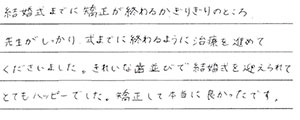 結婚式までに矯正が終わるかぎりぎりのところ、
先生がしっかり、式までに終わるように治療を進めて
くださいました。きれいな歯並びで結婚式を迎えられて
とてもハッピーでした。矯正して本当に良かったです。